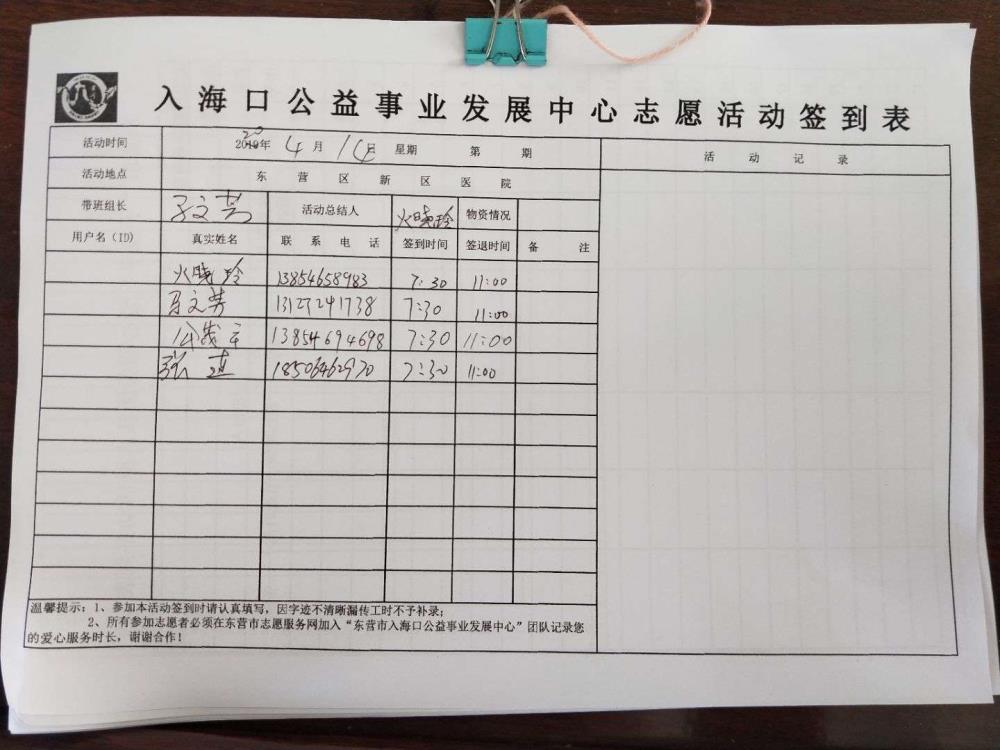 入海口公益事业发展中心志愿活动签到表
活动时间 2020年 4月 14日 星期 第 期 活动记录
活动地点 东营区新区医院
带班组长 活动总结人 火晓玲 物资情况
用户名(ID) 真实姓名 联系电话 签到时间 签退时间 备注
火晓玲 13854658983 7:30 11:00
13127241738 7:30 11:00
13854694698 7:30 11:00
张莲 18506462970 7:30 11:00
温馨提示:1、参加本活动签到时请认真填写,因字迹不清晰漏传工时不予补录;
2、所有参加志愿者必须在东营市志愿服务网加入“东营市入海口公益事业发展中心”团队记录您
的爱心服务时长,谢谢合作!